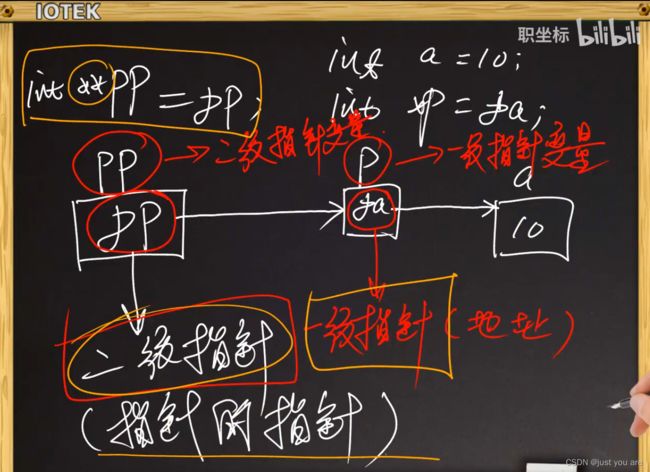 IOTEK
职坐标 bilibili
int a = 10;
int **pp = &p;
int *p = &a;
pp → 二级指针变量
p → 一级指针变量
a
&p
&a
10
二级指针
一级指针(地址)
(指针的指针)
CSDN @just you are